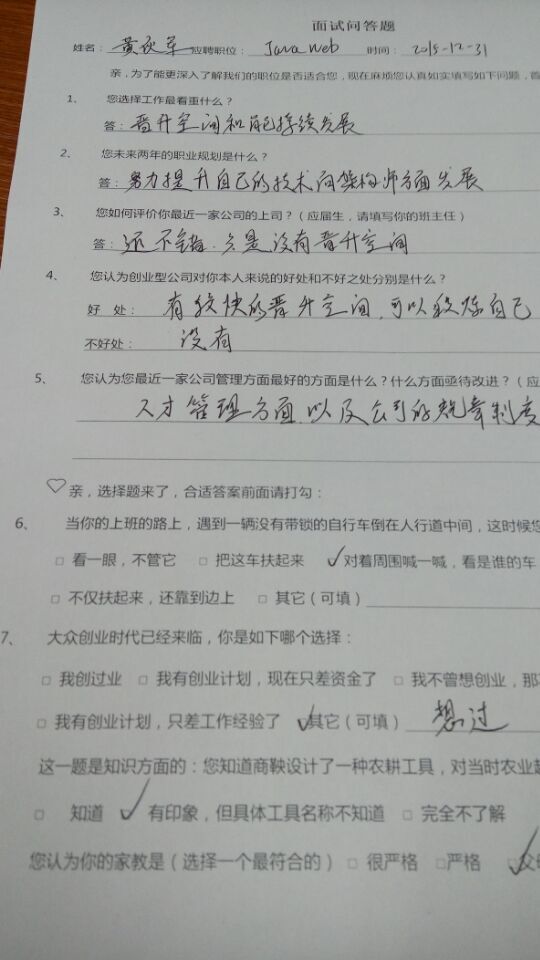 面试问答题
姓名： 黄欢军 应聘职位： Java web 时间： 2015-12-31
亲，为了能更深入了解我们的职位是否适合您，现在麻烦您认真如实填写如下问题，首
1、 您选择工作最看重什么？
答：晋升空间和能持续发展
2、 您未来两年的职业规划是什么？
答：努力提升自己的技术向架构师方面发展
3、 您如何评价你最近一家公司的上司？（应届生，请填写你的班主任）
答：还不错.只是没有晋升空间
4、 您认为创业型公司对你本人来说的好处和不好之处分别是什么？
好 处： 有较快的晋升空间,可以锻炼自己
不好处： 没有
5、 您认为您最近一家公司管理方面最好的方面是什么？什么方面亟待改进？（应
人才管理方面,以及公司的规章制度
亲，选择题来了，合适答案前面请打勾：
6、 当你的上班的路上，遇到一辆没有带锁的自行车倒在人行道中间，这时候您
□ 看一眼，不管它 □ 把这车扶起来 ✓对着周围喊一喊，看是谁的车
□ 不仅扶起来，还靠到边上 □ 其它（可填）
7、 大众创业时代已经来临，你是如下哪个选择：
□ 我创过业 □ 我有创业计划，现在只差资金了 □ 我不曾想创业，那
□ 我有创业计划，只差工作经验了 ✓其它（可填） 想过
这一题是知识方面的：您知道商鞅设计了一种农耕工具，对当时农业起
□ 知道 ✓ 有印象，但具体工具名称不知道 □ 完全不了解
您认为你的家教是（选择一个最符合的） □ 很严格 □严格 ✓父母